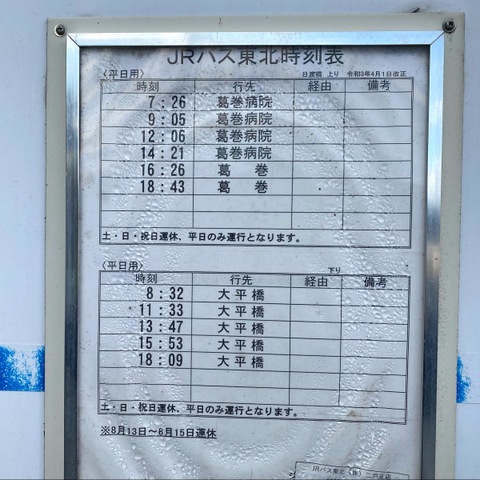 JRバス東北時刻表
(平日用) 日渡橋 上り 令和3年4月1日改正
時刻 行先 経由 備考
7:26 葛巻病院
9:05 葛巻病院
12:06 葛巻病院
14:21 葛巻病院
16:26 葛 巻
18:43 葛 巻
土・日・祝日運休、平日のみ運行となります。
(平日用) 下り
時刻 行先 経由 備考
8:32 大平橋
11:33 大平橋
13:47 大平橋
15:53 大平橋
18:09 大平橋
土・日・祝日運休、平日のみ運行となります。
※8月13日～8月15日運休
JRバス東北(株)二戸支店